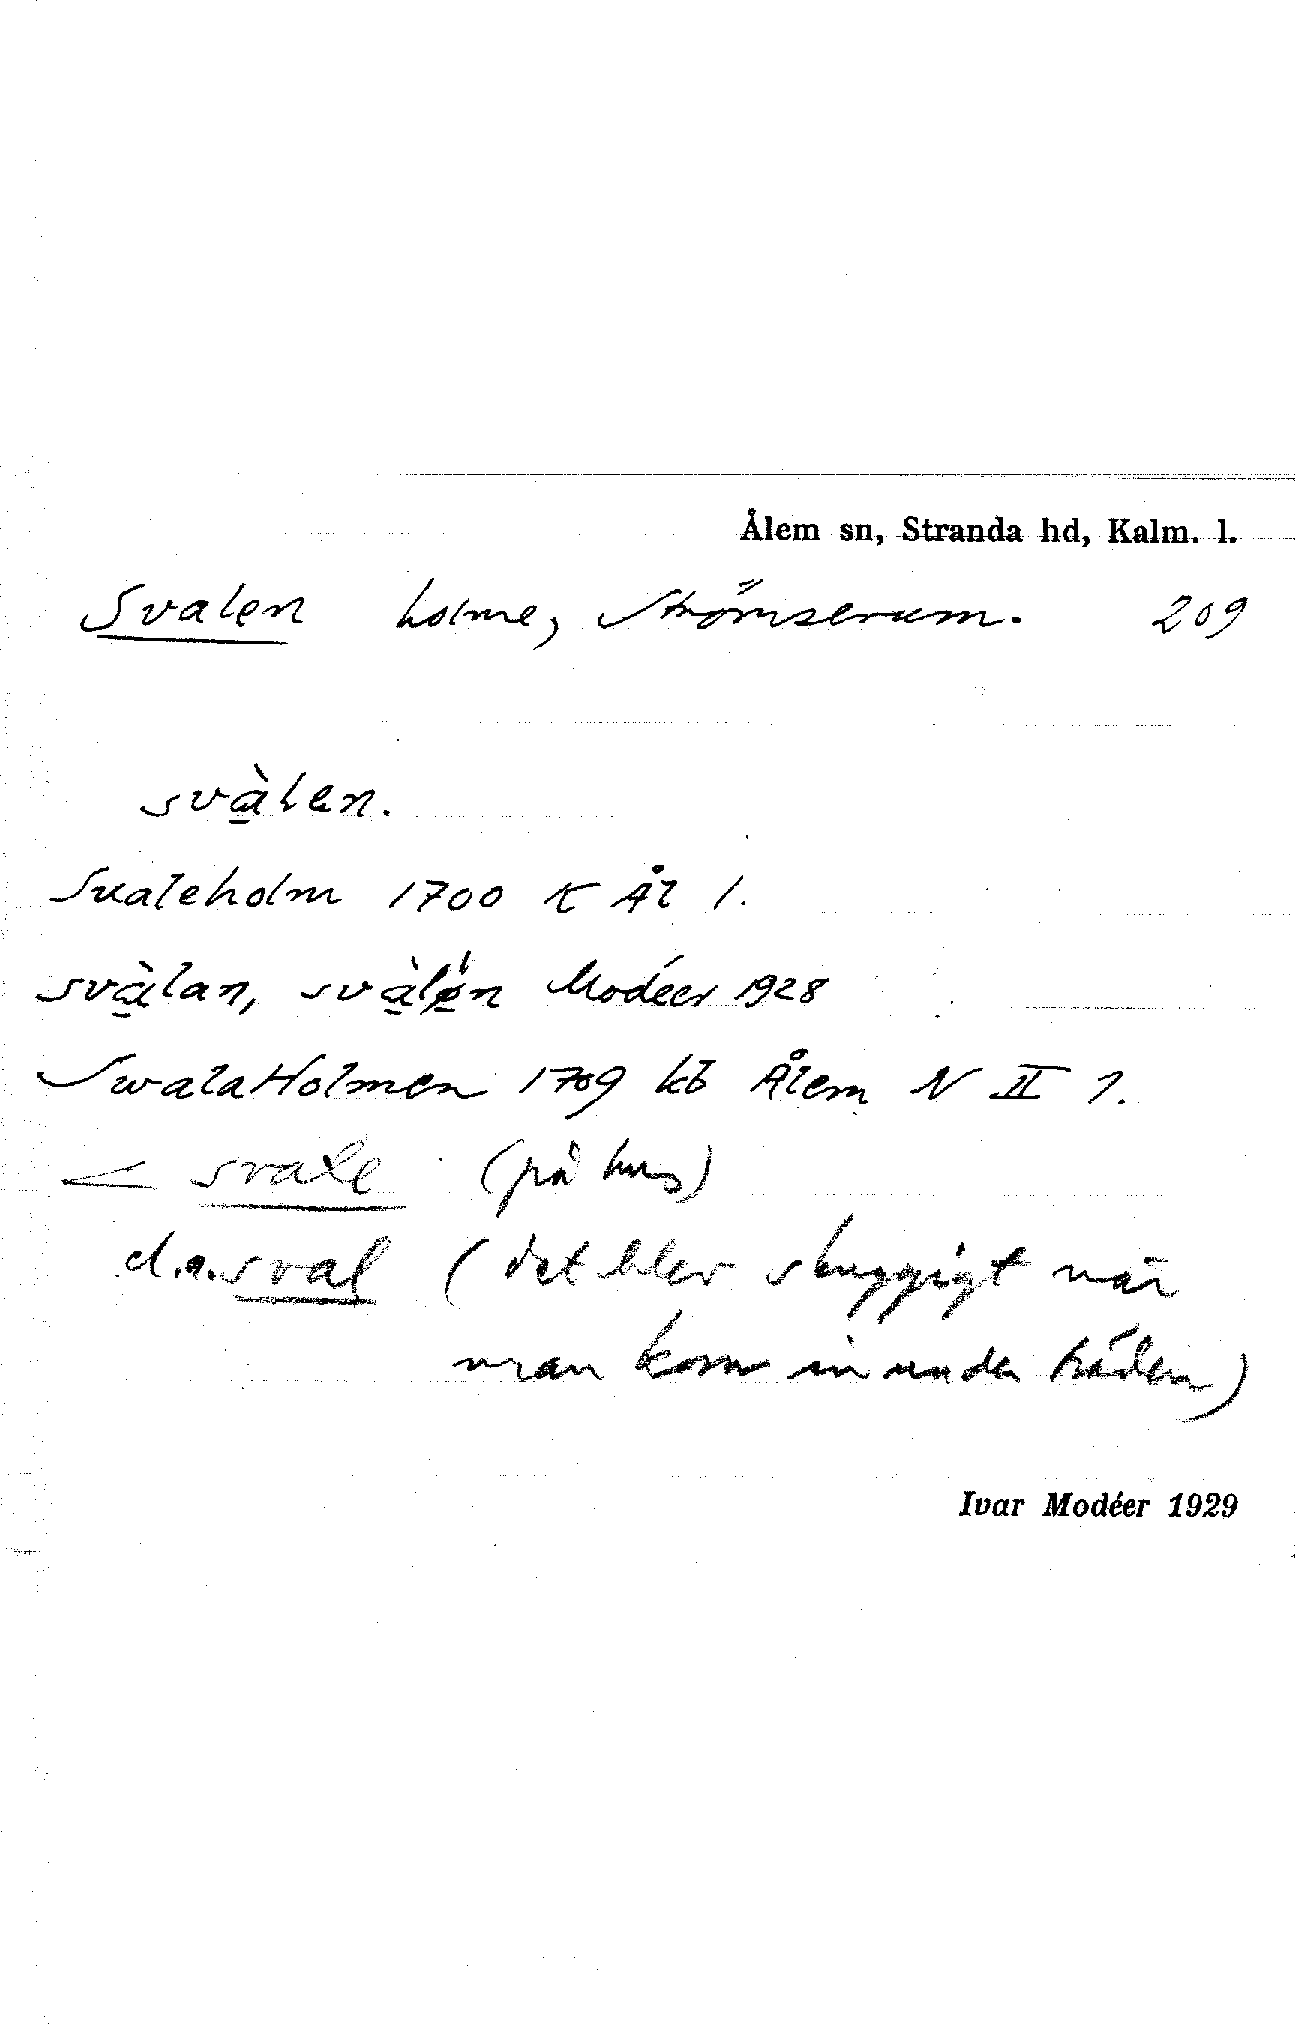 Ålem sn, Stranda hd, Kalm. l.
Svalen holme, Strömserum. 209
svàlen.
Svaleholm 1700 K Ål 1.
svàlan, svàlen Modéer 1928
SwalaHolmen 1709 kb Ålem N II 1.
< svale (på hus)
el. a. sval (det blev skuggigt när
man kom in under träden)
Ivar Modéer 1929